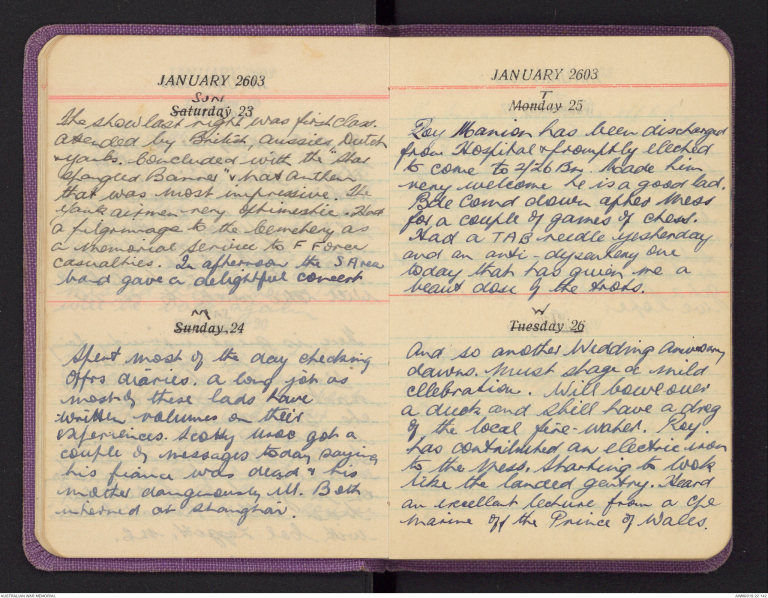 JANUARY 2603
SUN
Saturday 23
The show last night was first class.
Attended by British, Aussies, Dutch
& Yanks. Concluded with the "Star
Spangled Banner" & Nat Anthem
that was most impressive. The
Yank airmen very optimistic. Had
a pilgrimage to the Cemetery as
a memorial service to F Force
casualties. In afternoon the S Area
band gave a delightful concert
M
Sunday 24
Spent most of the day checking
Offrs diaries. A long job as
most of these lads have
written volumes on their
experiences. Scotty got a
couple of messages today saying
his fiance was dead & his
mother dangerously ill. Both
interned at Shanghai.
JANUARY 2603
T
Monday 25
Roy Manion has been discharged
from Hospital & promptly elected
to come to 2/26 Bn. Made him
very welcome he is a good lad.
down after Mess
for a couple of games of chess.
Had a TAB needle yesterday
and an anti-dysentery one
today that has given me a
beaut dose of the trots.
W
Tuesday 26
And so another Wedding Aniversary
dawns. Must stage a mild
celebration. Will bowl over
a duck and still have a drag
of the local fire-water. Roy.
has contributed an electric iron
to the Mess. Starting to look
like the landed gentry. Heard
an excellent lecture from a Cpl
Marine off the Prince of Wales.
AUSTRALIAN WAR MEMORIAL